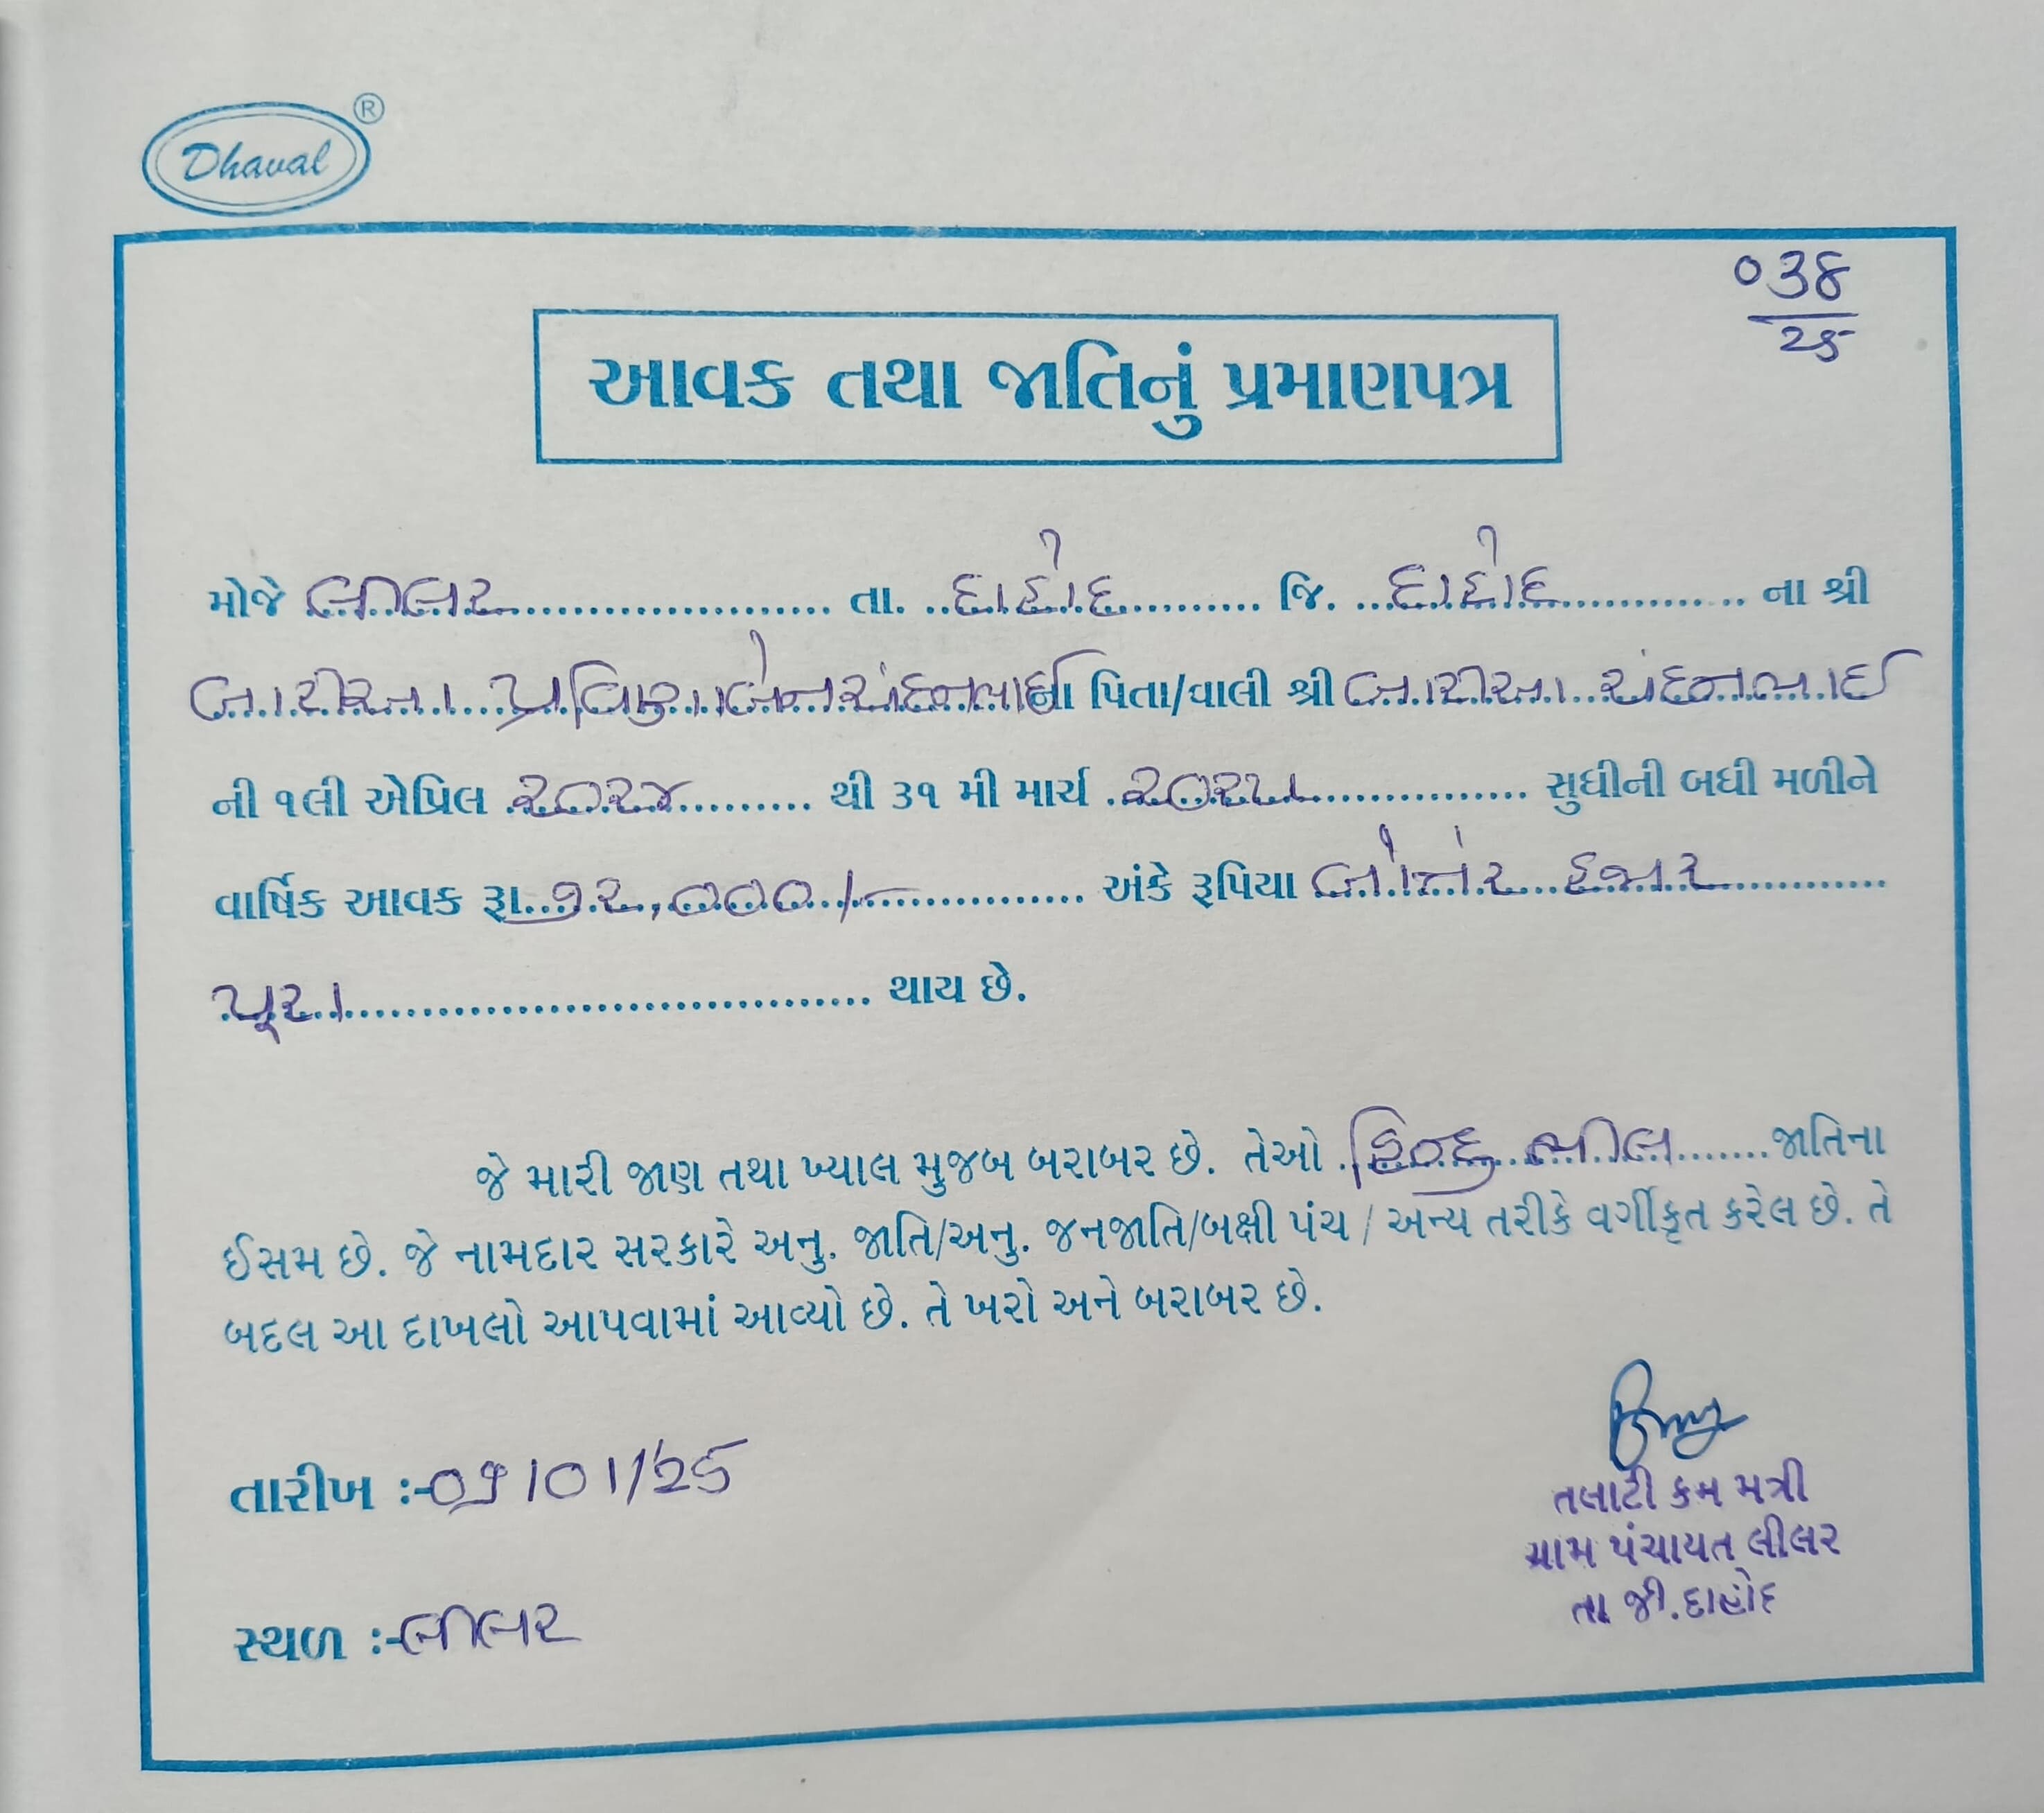 Dhaval ®
038
25
આવક તથા જાતિનું પ્રમાણપત્ર
મોજે લીલર તા. દાહોદ જિ. દાહોદ ના શ્રી
બારીઆ પ્રવિણાબેન ચંદનભાઈ ના પિતા/વાલી શ્રી બારીઆ ચંદનભાઈ
ની ૧લી એપ્રિલ ૨૦૨૪ થી ૩૧ મી માર્ચ ૨૦૨૫ સુધીની બધી મળીને
વાર્ષિક આવક રૂા. ૭૨,૦૦૦/- અંકે રૂપિયા બોંતેર હજાર
પૂરા થાય છે.
જે મારી જાણ તથા ખ્યાલ મુજબ બરાબર છે. તેઓ હિન્દુ ભીલ જાતિના
ઈસમ છે. જે નામદાર સરકારે અનુ. જાતિ/અનુ. જનજાતિ/બક્ષી પંચ / અન્ય તરીકે વર્ગીકૃત કરેલ છે. તે
બદલ આ દાખલો આપવામાં આવ્યો છે. તે ખરો અને બરાબર છે.
તારીખ :- 09/01/25
તલાટી કમ મંત્રી
ગ્રામ પંચાયત લીલર
તા જી.દાહોદ
સ્થળ :- લીલર